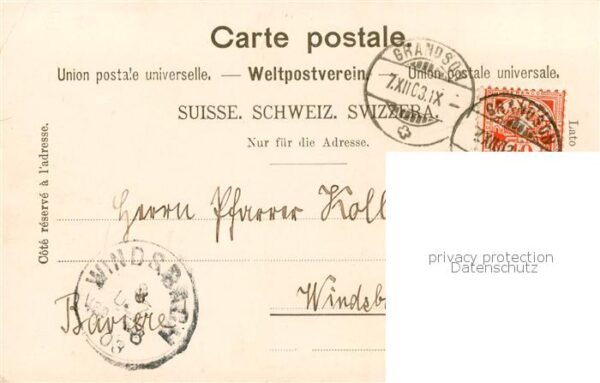 Carte postale.
Union postale universelle. — Weltpostverein. — Unione postale universale.
SUISSE. SCHWEIZ. SVIZZERA.
Nur für die Adresse.
Côté réservé à l'adresse.
Lato
GRANDSON
7.XII.03.IX
GRANDSON
Herrn Pfarrer Koll
Windsb
Bavière
WINDSBACH
privacy protection
Datenschutz